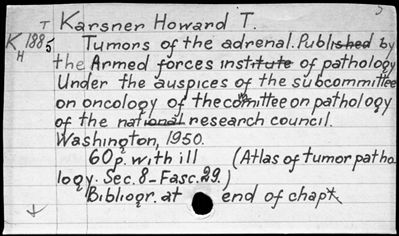 T Karsner Howard T.
K 188s Tumors of the adrenal. Published by
H the Armed forces institute of pathology
Under the auspices of the subcommittee
on oncology of the comittee on pathology
of the national research council.
Washington, 1950.
60p. with ill (Atlas of tumor patho
logy. Sec. 8_Fasc. 29.)
Bibliogr. at end of chapt